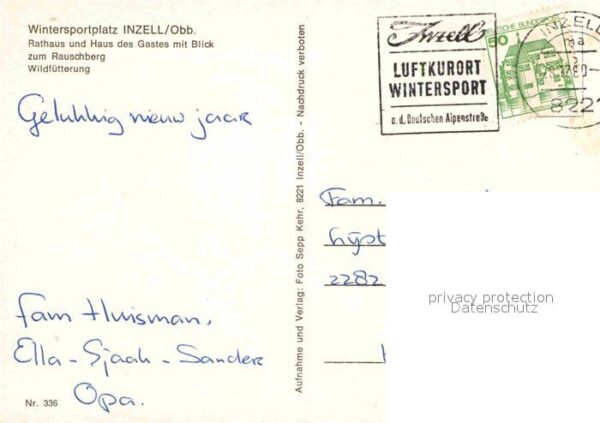 Wintersportplatz INZELL/Obb.
Rathaus und Haus des Gastes mit Blick
zum Rauschberg
Wildfütterung
Gelukkig nieuw jaar
Fam Huisman.
Ella - Sjaak - Sander
Opa.
Nr. 336
Aufnahme und Verlag: Foto Sepp Kehr, 8221 Inzell/Obb. - Nachdruck verboten
Inzell
LUFTKURORT
WINTERSPORT
a.d. Deutschen Alpenstraße
50
INZELL
8221
Fam.
2282
privacy protection
Datenschutz